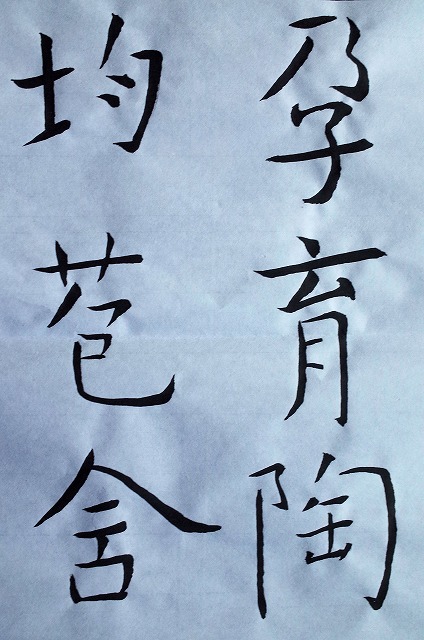 孕育陶
均苞含